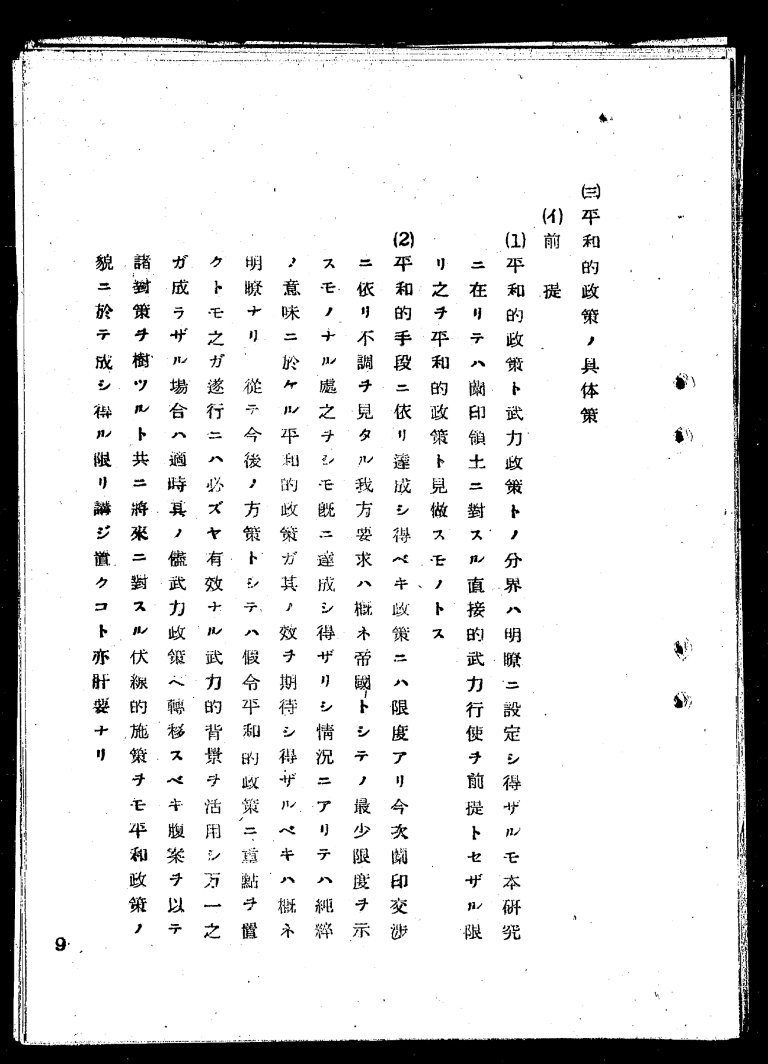 ㈢平和的政策ノ具体策
(イ)前提
(1)平和的政策ト武力政策トノ分界ハ明瞭ニ設定シ得ザルモ本研究
ニ在リテハ蘭印領土ニ對スル直接的武力行使ヲ前提トセザル限
リ之ヲ平和的政策ト見做スモノトス
(2)平和的手段ニ依リ達成シ得ベキ政策ニハ限度アリ今次蘭印交渉
ニ依リ不調ヲ見タル我方要求ハ概ネ帝國トシテノ最少限度ヲ示
スモノナル處之ヲシモ既ニ達成シ得ザリシ情況ニアリテハ純粹
ノ意味ニ於ケル平和的政策ガ其ノ效ヲ期待シ得ザルベキハ概ネ
明瞭ナリ 從テ今後ノ方策トシテハ假令平和的政策ニ重點ヲ置
クトモ之ガ遂行ニハ必ズヤ有效ナル武力的背景ヲ活用シ万一之
ガ成ラザル場合ハ適時其ノ儘武力政策ヘ轉移スベキ腹案ヲ以テ
諸對策ヲ樹ツルト共ニ將來ニ對スル伏線的施策ヲモ平和政策ノ
貌ニ於テ成シ得ル限リ講ジ置クコト亦肝要ナリ
9